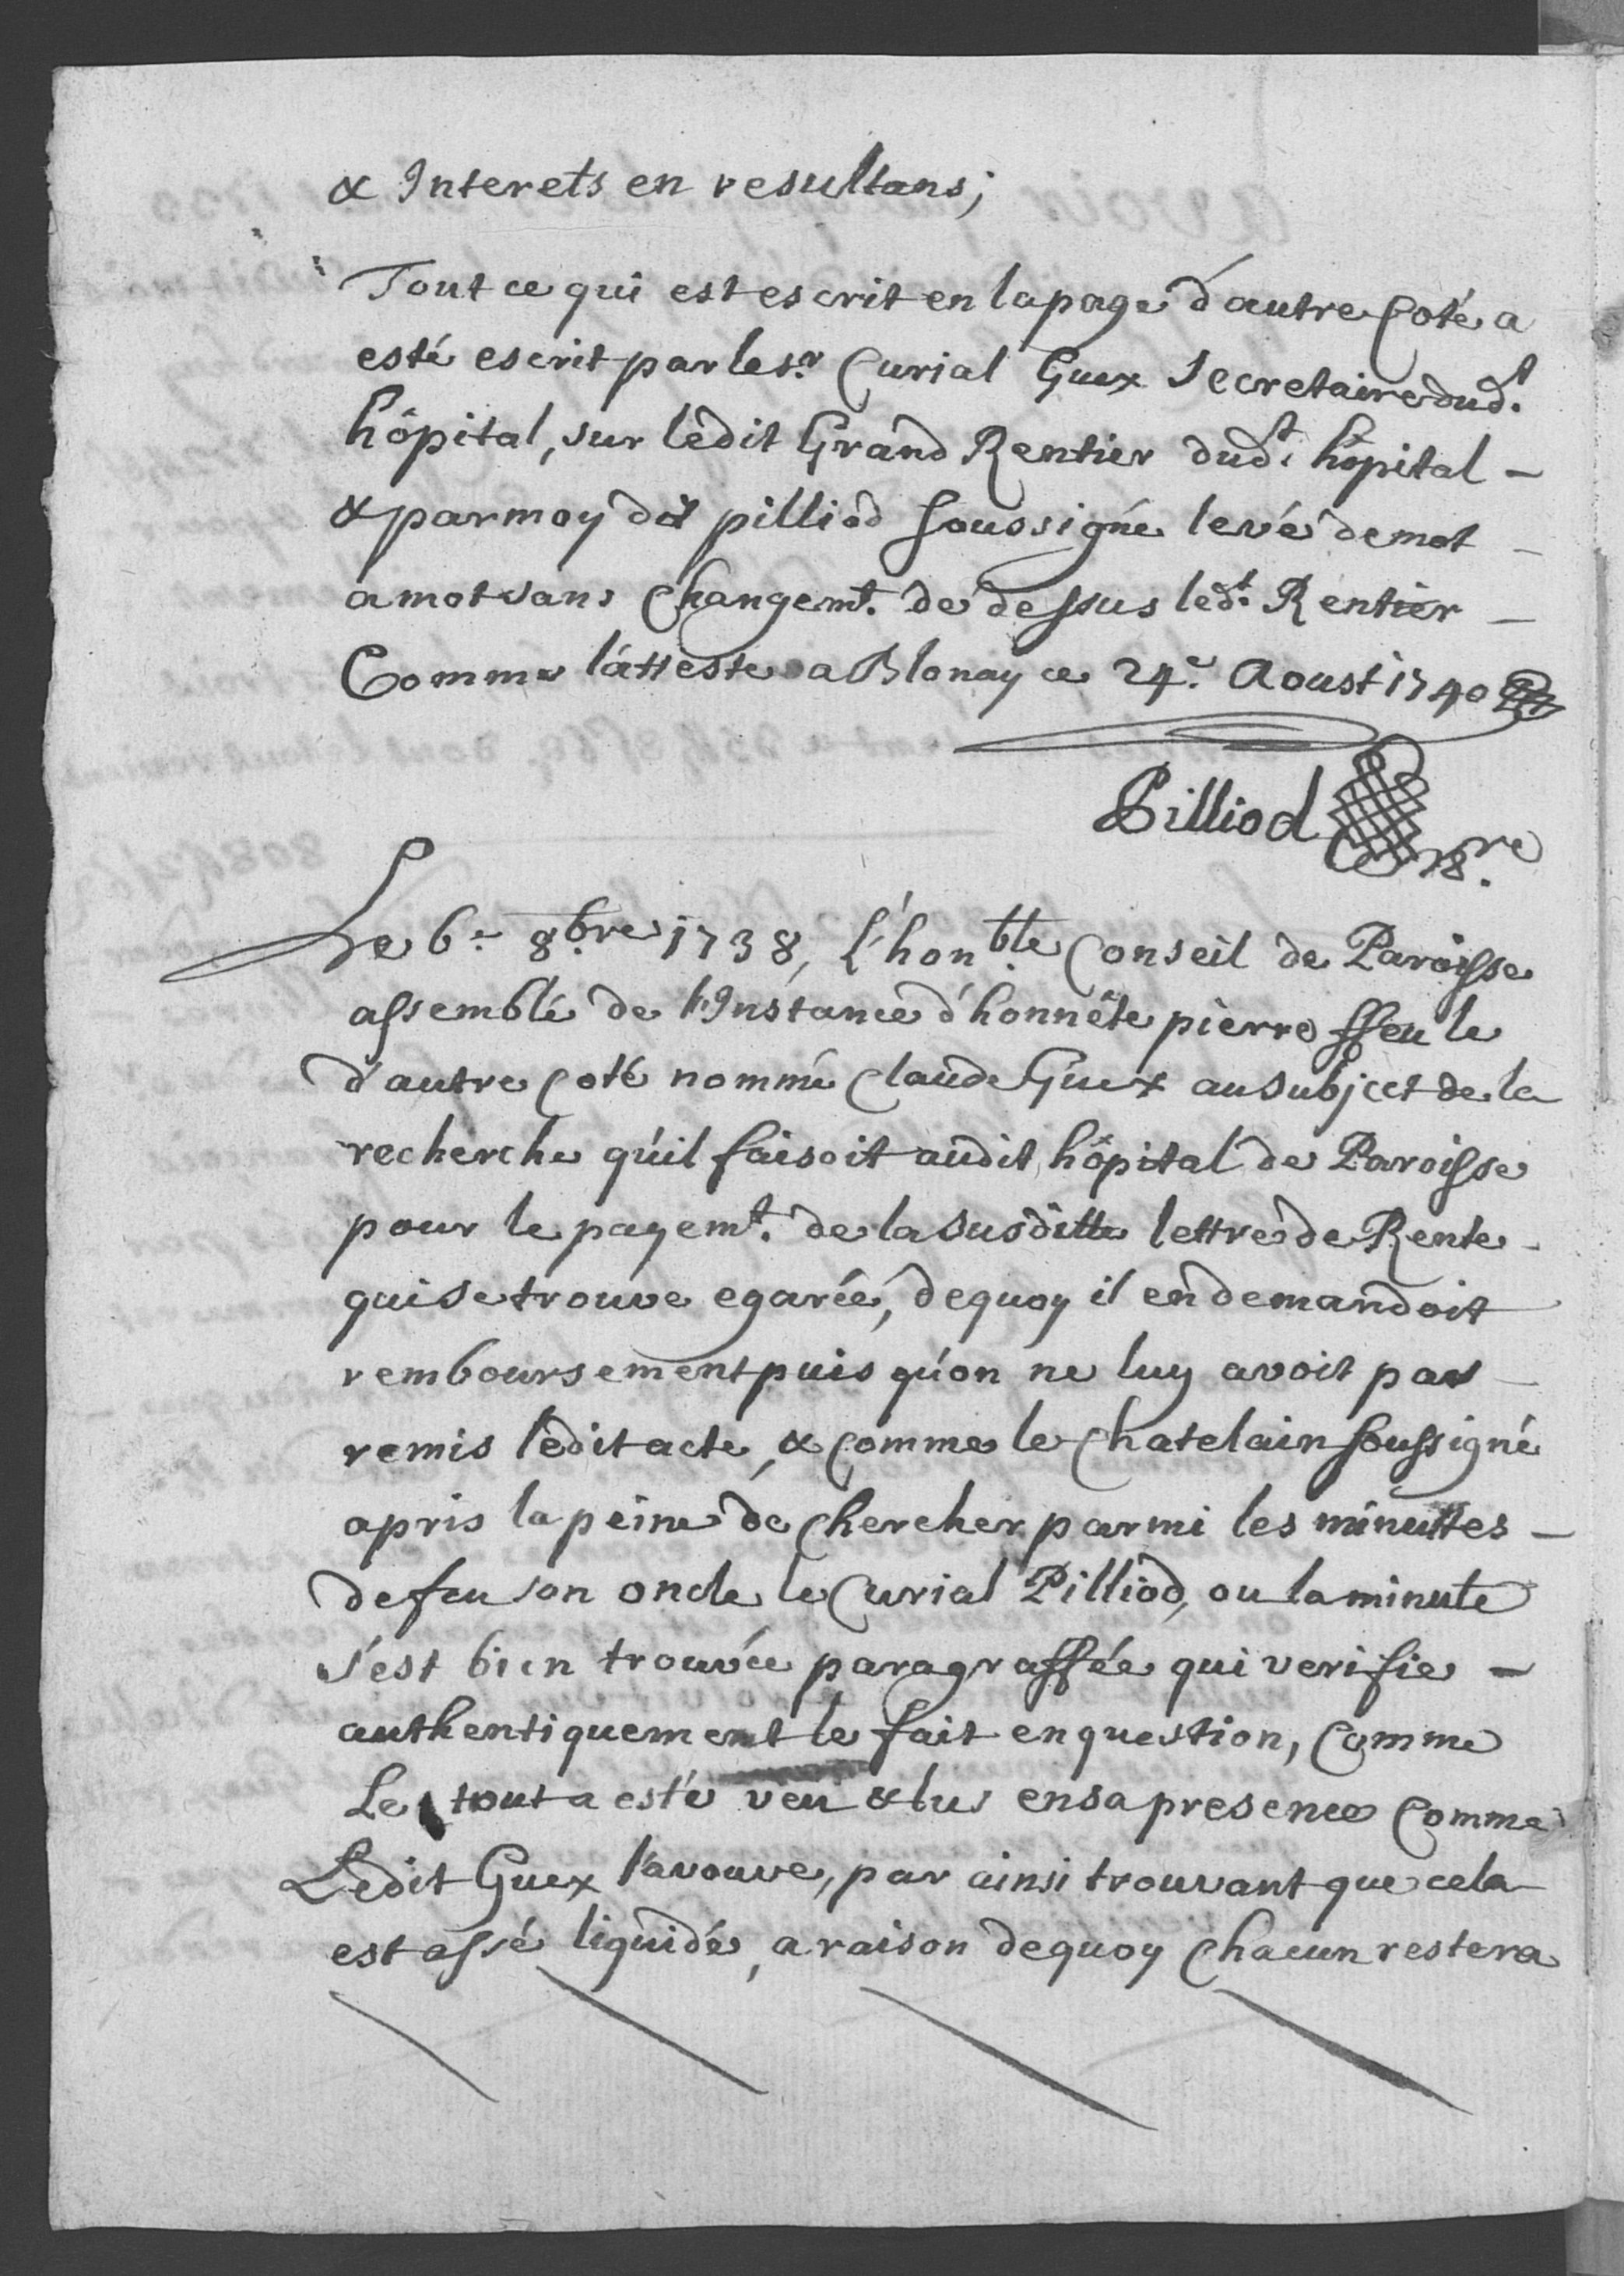 & Interets en resultans;
Tout ce qui est escrit en la page d'autre Coté a
esté escrit par le sr. Curial Guex Secretaire dudt.
hôpital, sur ledit Grand Rentier dudt. hôpital -
& par moy dit pilliod soussigné levé de mot -
a mot sans Changemt. de dessus ledt. Rentier -
Comme l'atteste a Blonay ce 24e. Aoust 1740
Pilliod
Le 6e. 8bre. 1738, L'honble. Conseil de Paroisse
assemblé de l'Instance d'honnête pierre ffeu le
d'autre Coté nommé Claude Guex au subject de la
recherche qu'il faisoit audit hôpital de Paroisse
pour le payemt. de la susditte lettre de Rente -
qui se trouve egarée, dequoy il en demandoit
remboursement puis qu'on ne luy avoit pas -
remis ledit acte, & Comme le Chatelain soussigné
a pris la peine de Chercher parmi les minuttes -
de feu son oncle le Curial Pilliod, ou la minute
s'est bien trouvée paragraffée qui verifie -
authentiquement le fait en question, Comme
Le tout a esté veu & lus en sa presence Comme
Ledit Guex l'avouve, par ainsi trouvant que cela
est assé liquidé, a raison dequoy Chacun restera